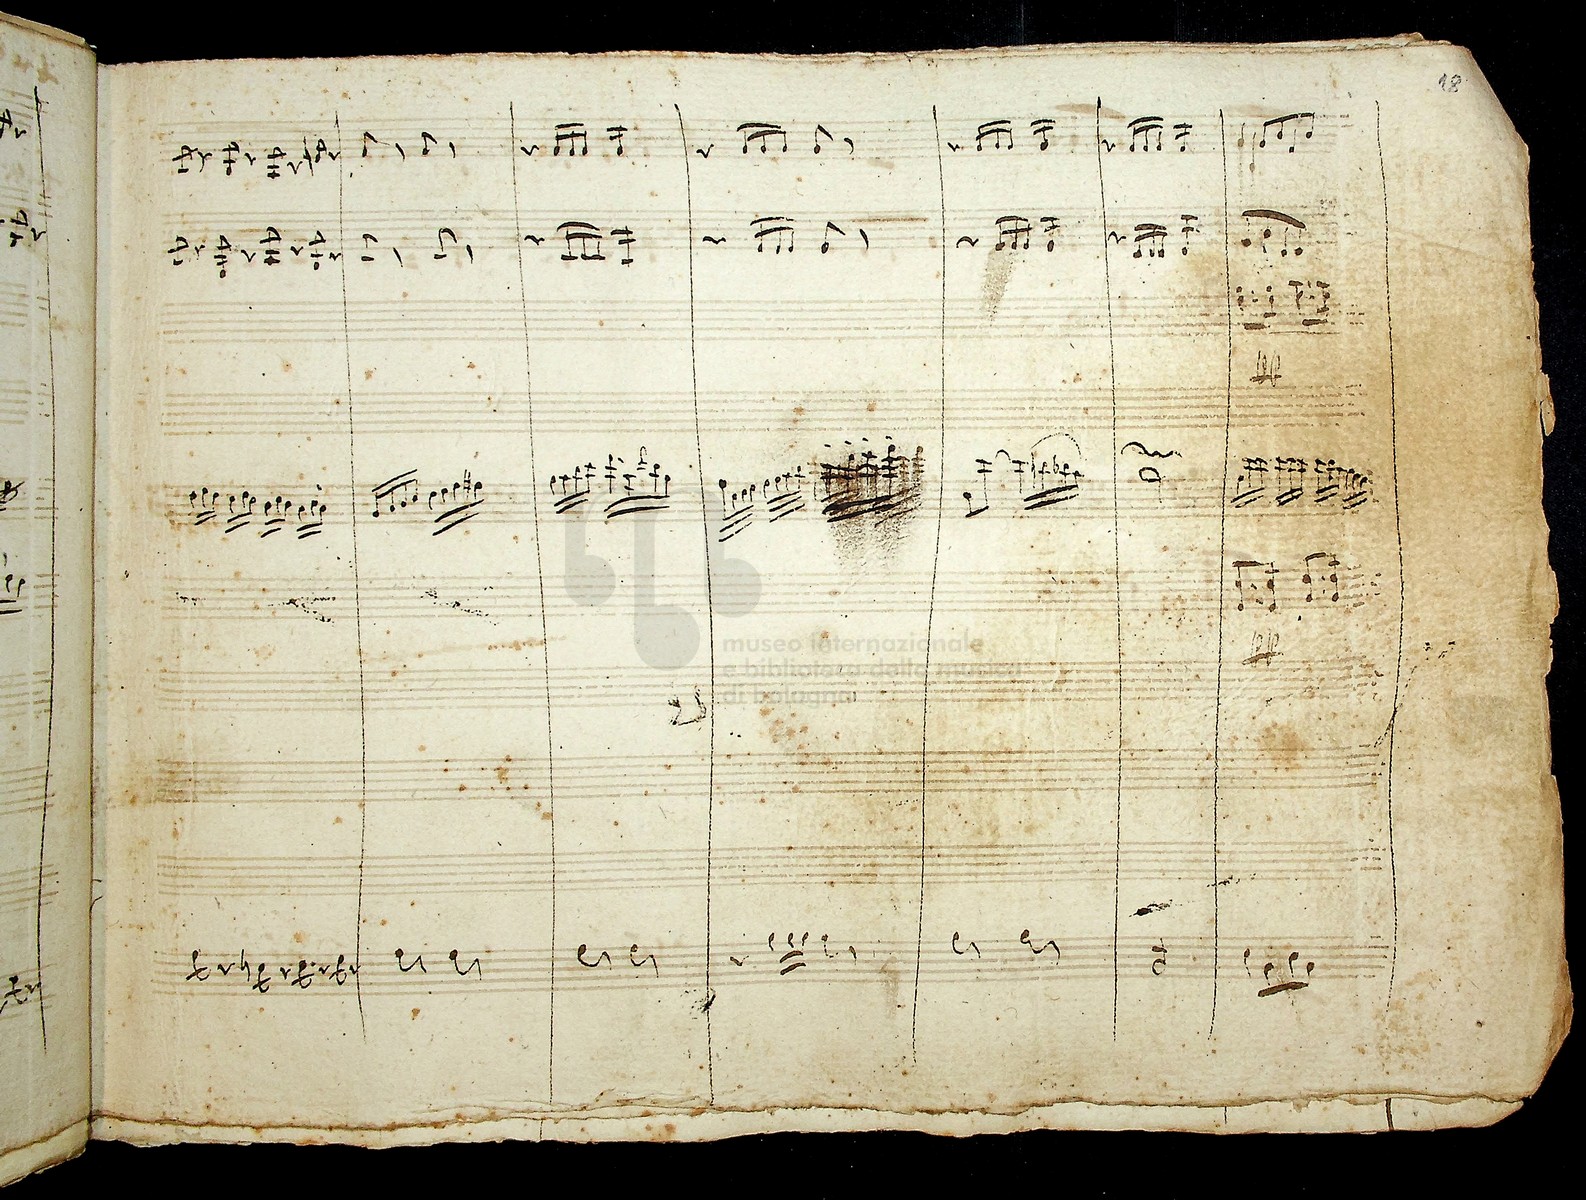 18
ff
museo internazionale
e biblioteca della musica
di bologna
ff